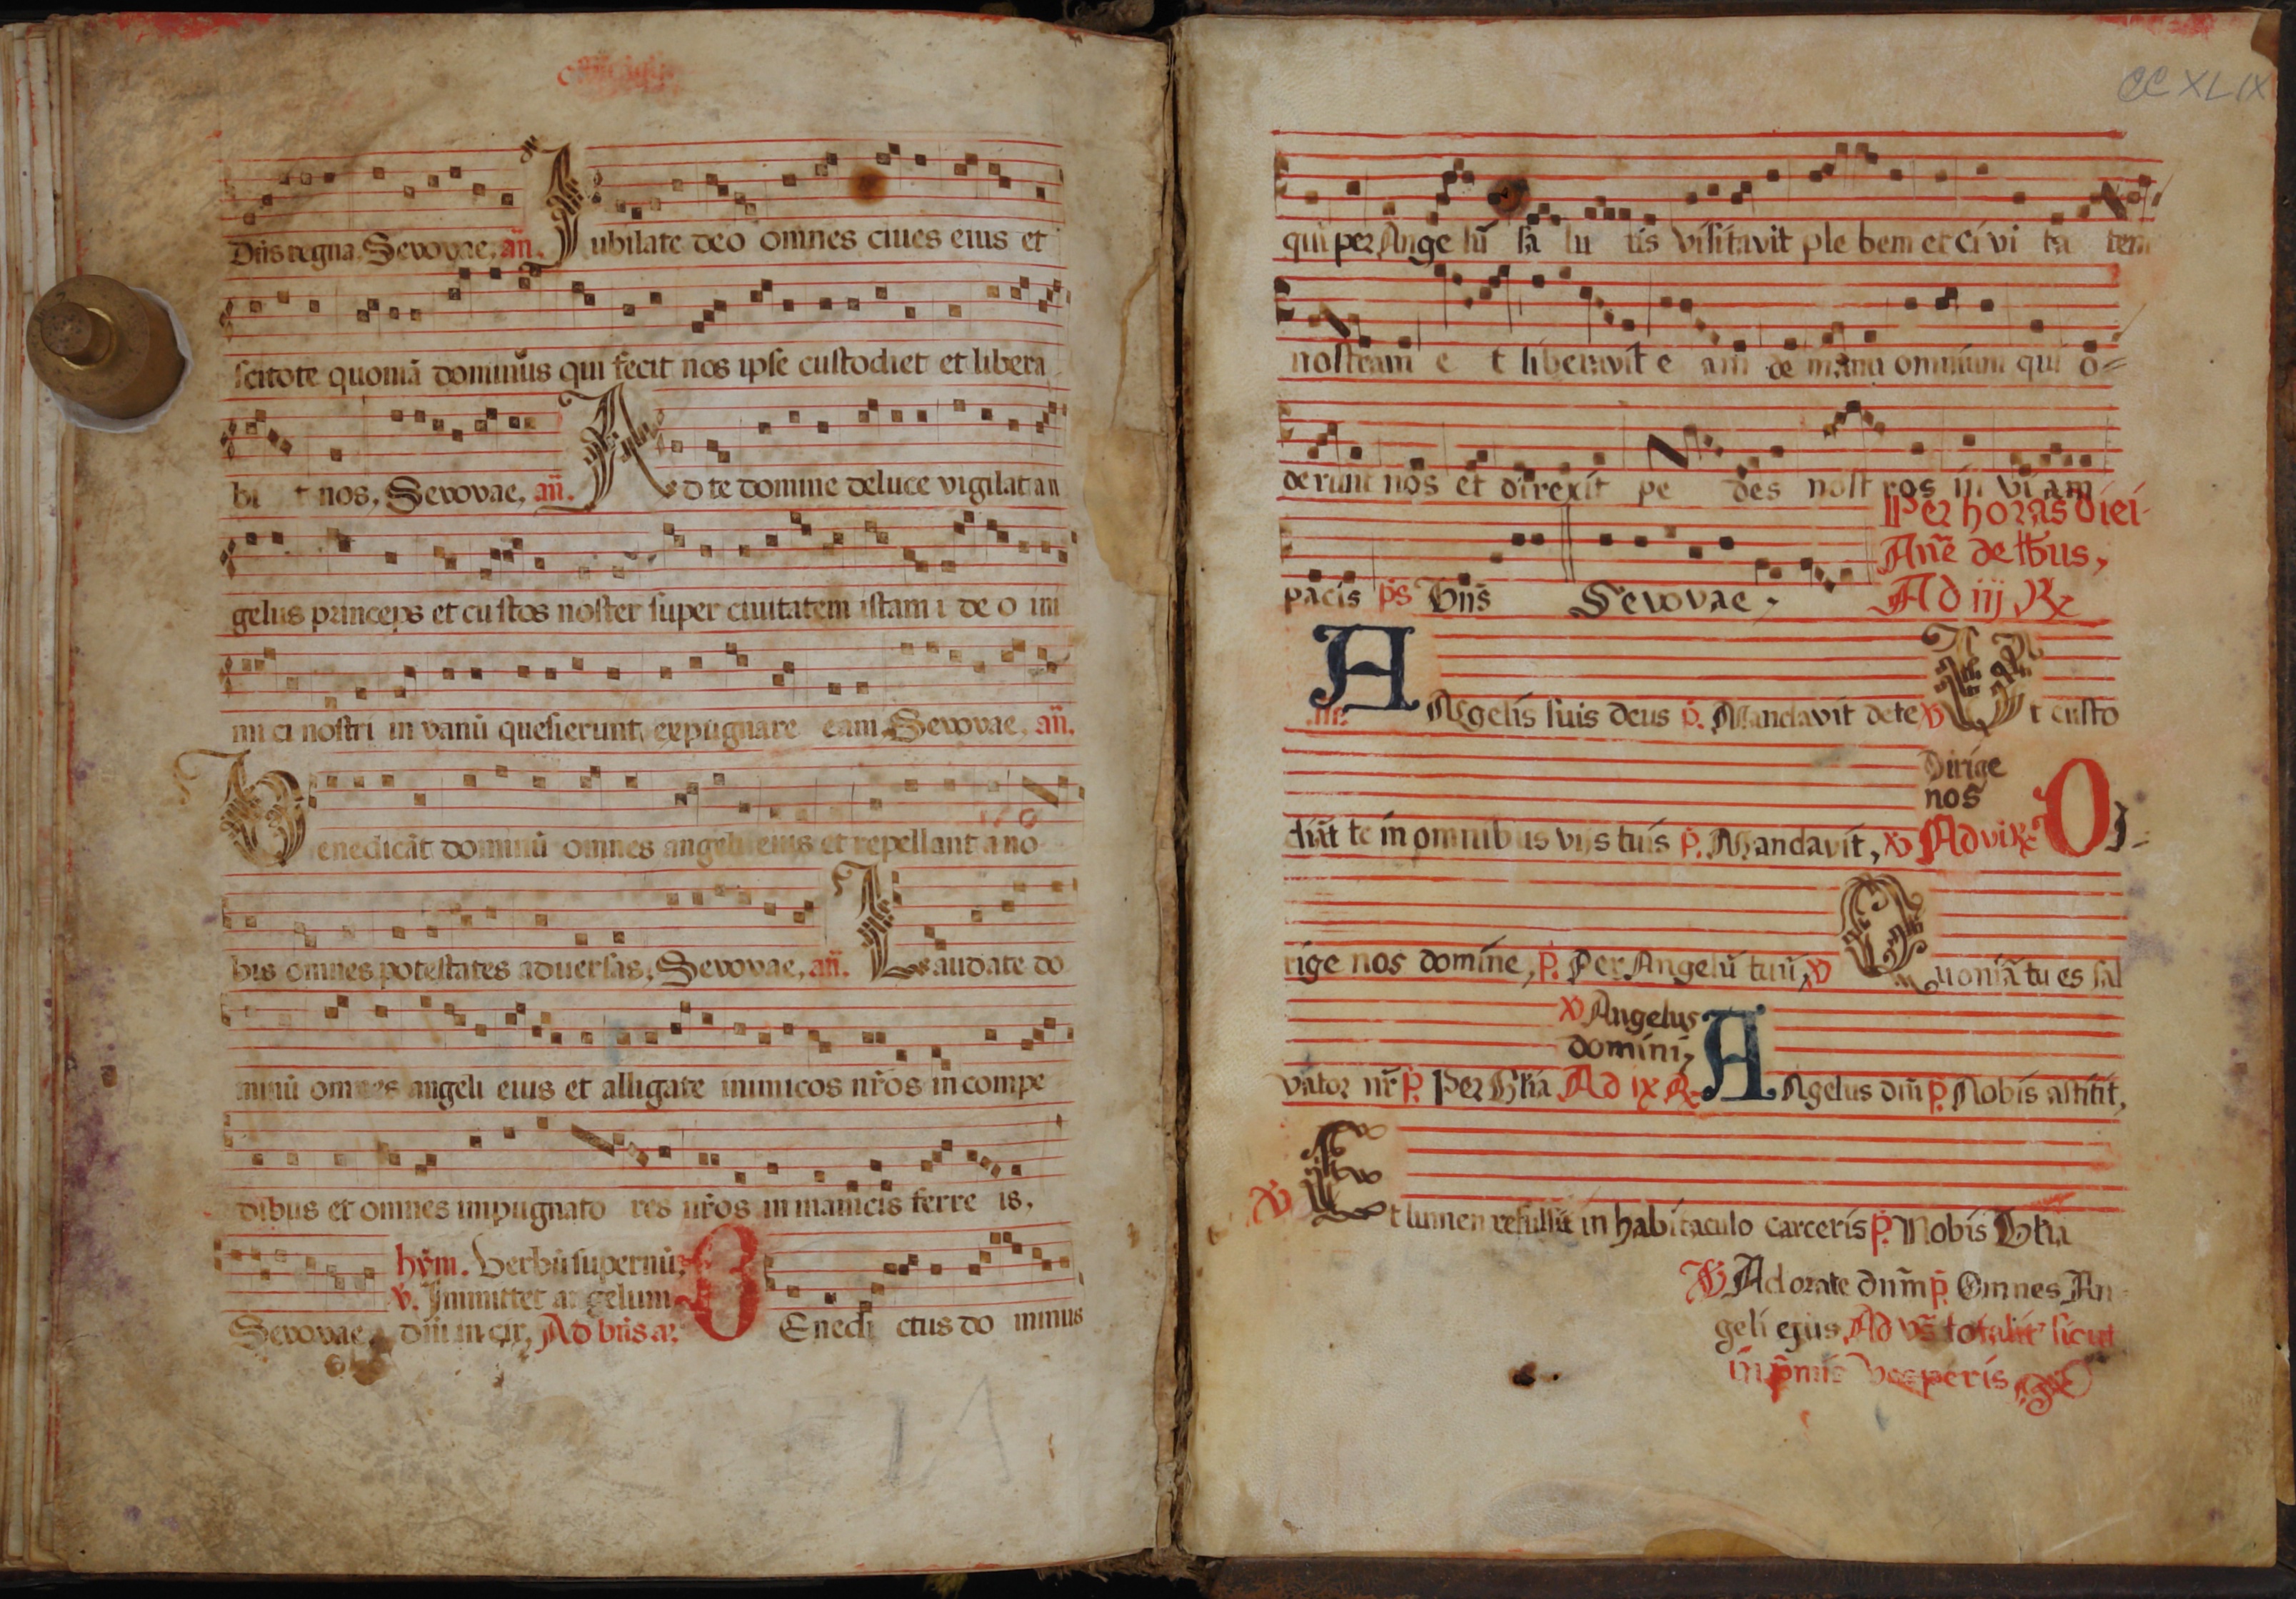 Dñs regna, Sevovae, añ. Jubilate deo omnes ciues eius et
scitote quoniā dominus qui fecit nos ipse custodiet et libera
bi t nos, Sevovae, añ. Ad te domine de luce vigilat an
gelus princeps et custos noster super ciuitatem istam i de o ini
mi ci nostri in vanū quesierunt expugnare eam, Sevovae, añ.
Benedicāt dominū omnes angeli eius et repellant a no
bis omnes potestates aduersas, Sevovae, añ. Laudate do
minū omnes angeli eius et alligate inimicos nr̄os in compe
dibus et omnes impugnato res nr̄os in manicis ferre is,
hÿm. Verbū supernū,
v. Jmmittet angelum
Sevovae, dñi in cir, Ad bñs a. BEnedi ctus do minus
CCXLIX
qui per Ange lū sa lu tis visitavit ple bem et ci vi ta tem
nostram e t liberavit e am de manu omnium qui o=
derunt nos et direxit pe des nost ros in vi am
Per horas diei
Añe de lbus,
pacis ps Bñs Sevovae, Ad iij R
ANgelis suis deus p. Mandavit de te v Ut custo
Dirige
nos
diūt te in omnibus vijs tuis p. Mandavit, v Ad vi R DJ-
rige nos domine, p. Per Angelū tuū, v Quoniā tu es sal
v Angelus
domini,
vator nr̄ p. Per Glia Ad ix R ANgelus dñi p. Nobis astitit,
v Et lumen refulsit in habitaculo carceris p. Nobis Glia
v Adorate dnm̄ p. Omnes An
geli ejus, Ad vs̄ totalit sicut
in p̄mis Vesperis